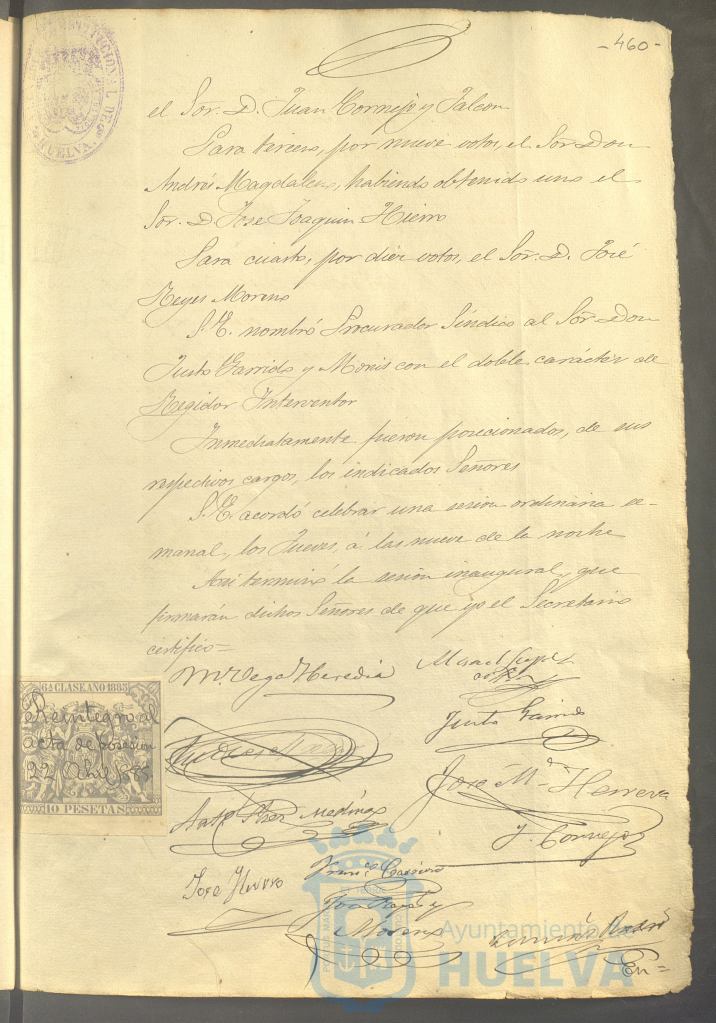 -460-
el Sor. D. Juan Cornejo y Falcon
Para tercero, por nueve votos, el Sor Don
Andrés Magdaleno, habiendo obtenido uno el
Sor. D José Joaquin Hierro
Para cuarto, por diez votos, el Sor. D. José
Reyes Moreno
S.E. nombró Procurador Síndico al Sor Don
Justo Garrido y Monis con el doble carácter de
Regidor Interventor
Inmediatamente fueron posicionados, de sus
respectivos cargos, los indicados Señores
S.E. acordó celebrar una sesion ordinaria se-
manal, los Jueves, á las nueve de la noche
Asi terminó la sesion inaugural, que
firmarán dichos Señores de que yo el Secretario
certifico=
M. Vega Heredia
Justo Garrido
José Ma. Herrera
Medina
J. Cornejo
José Hierro
José Reyes y
Moreno
En=
6a CLASE AÑO 1885
Reintegro al
acta de posesion
22 Abril / 85
10 PESETAS
CONSTITUCIONAL DE
HUELVA.
Ayuntamiento
HUELVA